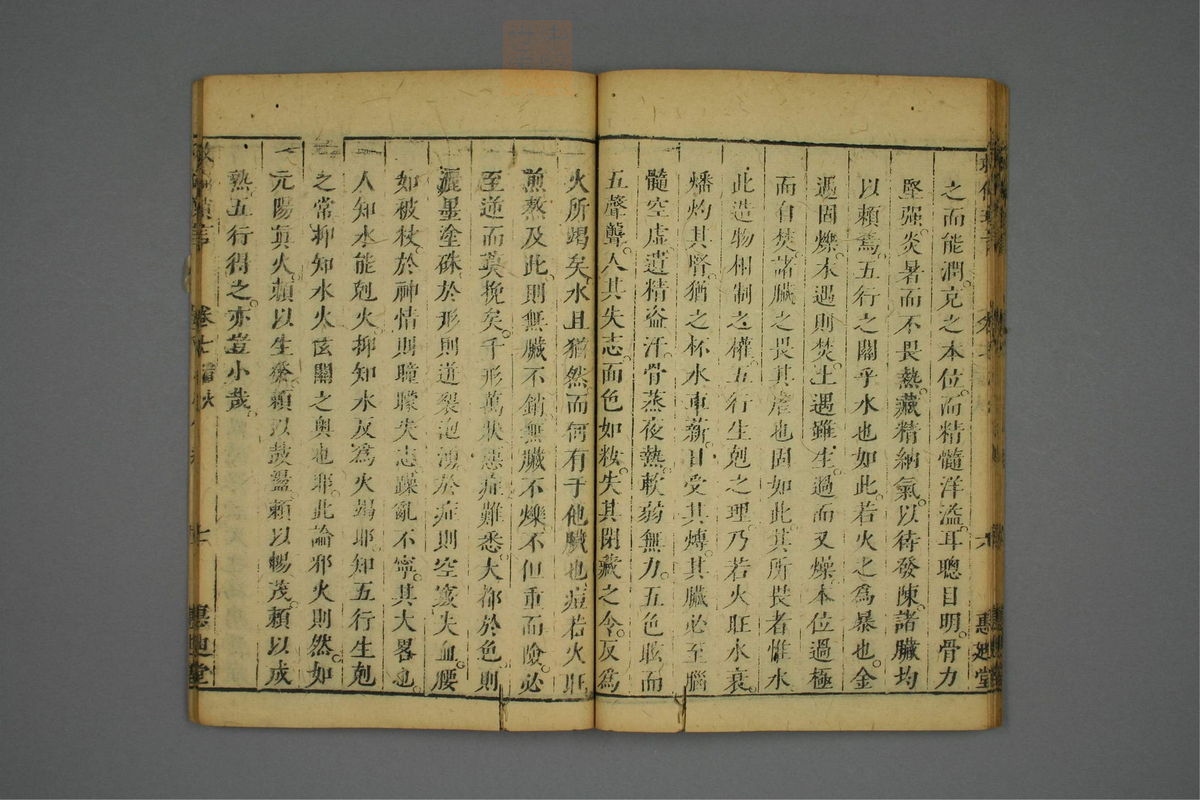 之而能潤克之本位而精髓洋溢耳聰目明骨力
堅强炎暑而不畏熱藏精納氣以待發陳諸臟均
以賴焉五行之關乎水也如此若火之為暴也金
遇固爍木遇則焚土遇雖生過而又燥本位過極
而自焚諸臟之畏其虐也固如此其所畏者惟水
此造物相制之權五行生剋之理乃若火旺水衰
燔灼其腎猶之杯水車薪日受其煿其臟必至腦
髓空虛遺精盗汗骨蒸夜熱軟弱無力五色眩而
五聲聾人其失志而色如妝失其閉藏之令反為
火所竭矣水且猶然而何有于他臟也痘若火旺
煎熬及此則無臟不銷無臟不爍不但重而險必
至逆而莫挽矣千形萬狀惡症難悉大都於色則
灑墨塗硃於形則迸裂泡湧於症則空竅失血腰
如被杖於神情則曈朦失志躁亂不寧其大畧也
人知水能剋火抑知水反為火竭耶知五行生剋
之常抑知水火玄關之奥也耶此論邪火則然如
元陽眞火賴以生發賴以鼓盪賴以暢茂賴以成
熟五行得之亦豈小哉
卷七
七
惠廸堂
六
惠廸堂